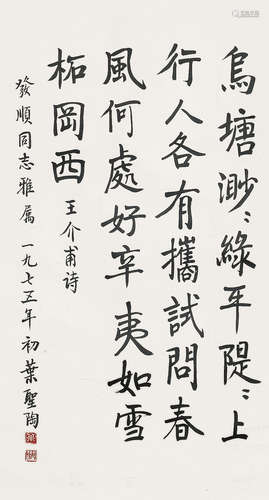 烏塘渺〻綠平隄〻上
行人各有攜試問春
風何處好辛夷如雪
柘岡西 王介甫詩
發順同志雅屬 一九七五年初葉聖陶